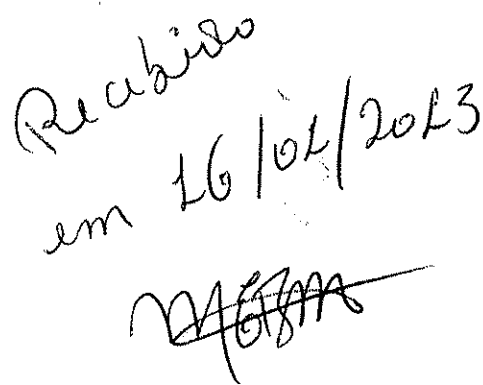 Recebido
em 16/01/2013